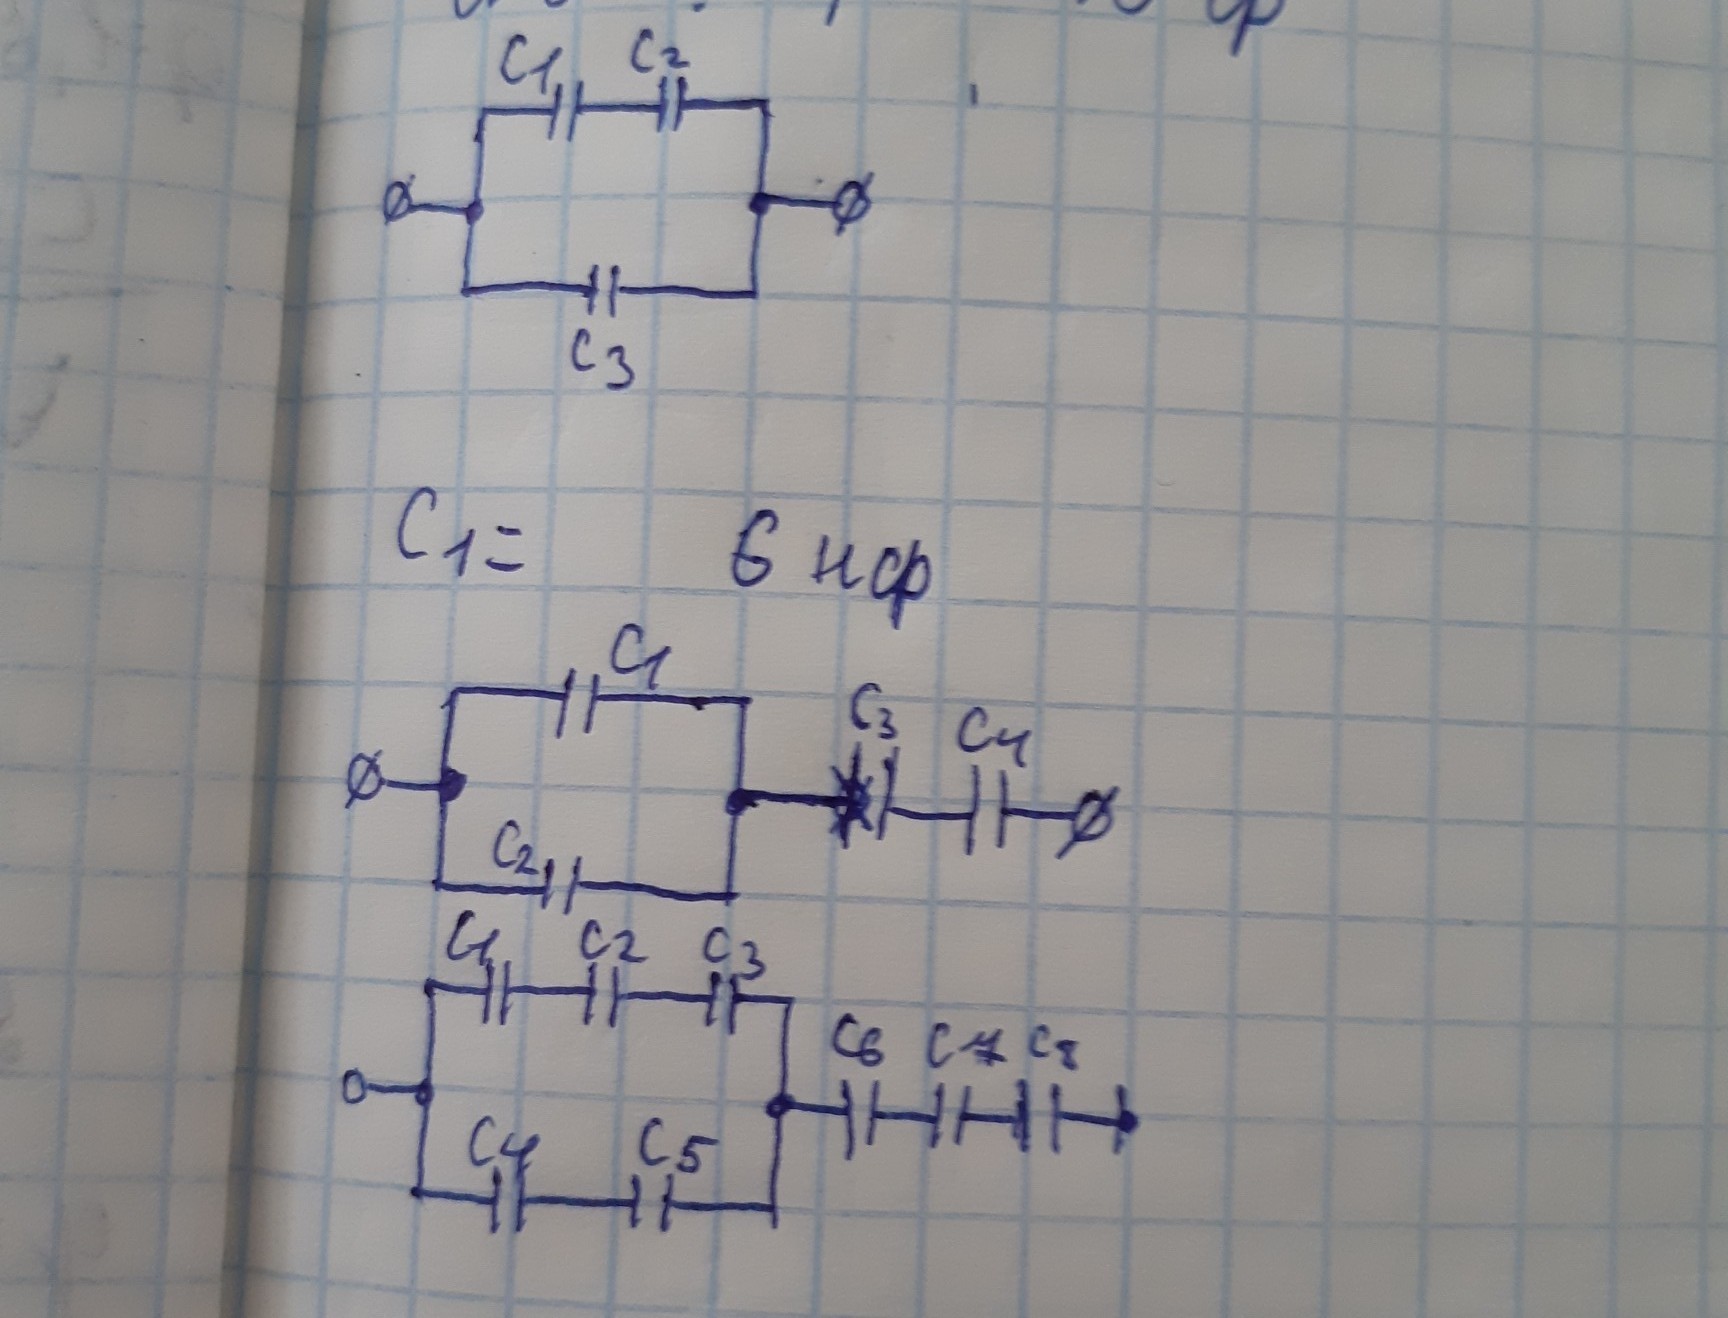 C1 C2
C3
C1= 6 нф
C1
C3 C4
C2
C1 C2 C3
C6 C7 C8
C4 C5